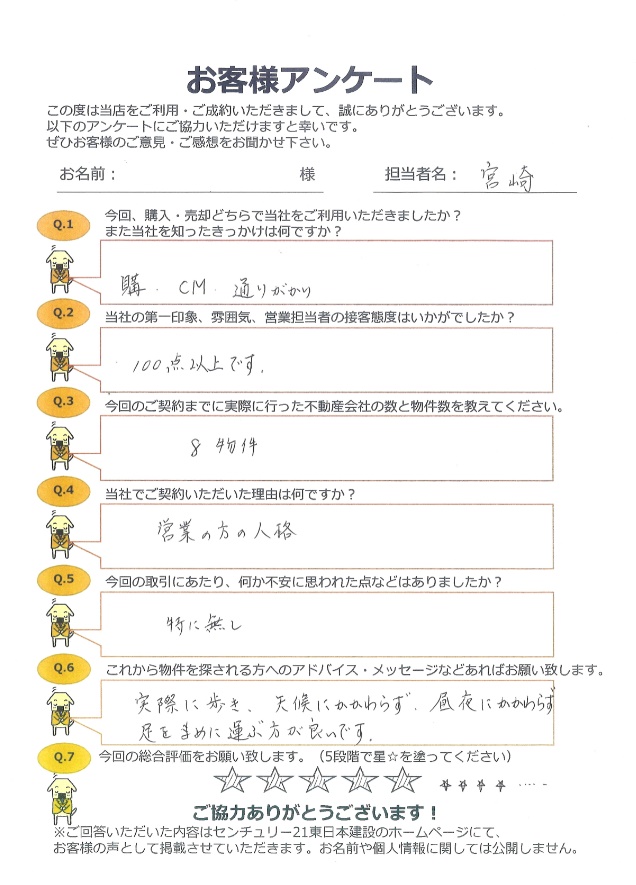 お客様アンケート
この度は当店をご利用・ご成約いただきまして、誠にありがとうございます。
以下のアンケートにご協力いただけますと幸いです。
ぜひお客様のご意見・ご感想をお聞かせ下さい。
お名前： 様 担当者名： 宮崎
Q.1 今回、購入・売却どちらで当社をご利用いただきましたか？
また当社を知ったきっかけは何ですか？
購. CM. 通りがかり
Q.2 当社の第一印象、雰囲気、営業担当者の接客態度はいかがでしたか？
100点以上です.
Q.3 今回のご契約までに実際に行った不動産会社の数と物件数を教えてください。
8 物件
Q.4 当社でご契約いただいた理由は何ですか？
営業の方の人格
Q.5 今回の取引にあたり、何か不安に思われた点などはありましたか？
特に無し
Q.6 これから物件を探される方へのアドバイス・メッセージなどあればお願い致します。
実際に歩き、天候にかかわらず. 昼夜にかかわらず
足をまめに運ぶ方が良いです.
Q.7 今回の総合評価をお願い致します。（5段階で星☆を塗ってください）
ご協力ありがとうございます！
※ご回答いただいた内容はセンチュリー21東日本建設のホームページにて、
お客様の声として掲載させていただきます。お名前や個人情報に関しては公開しません。